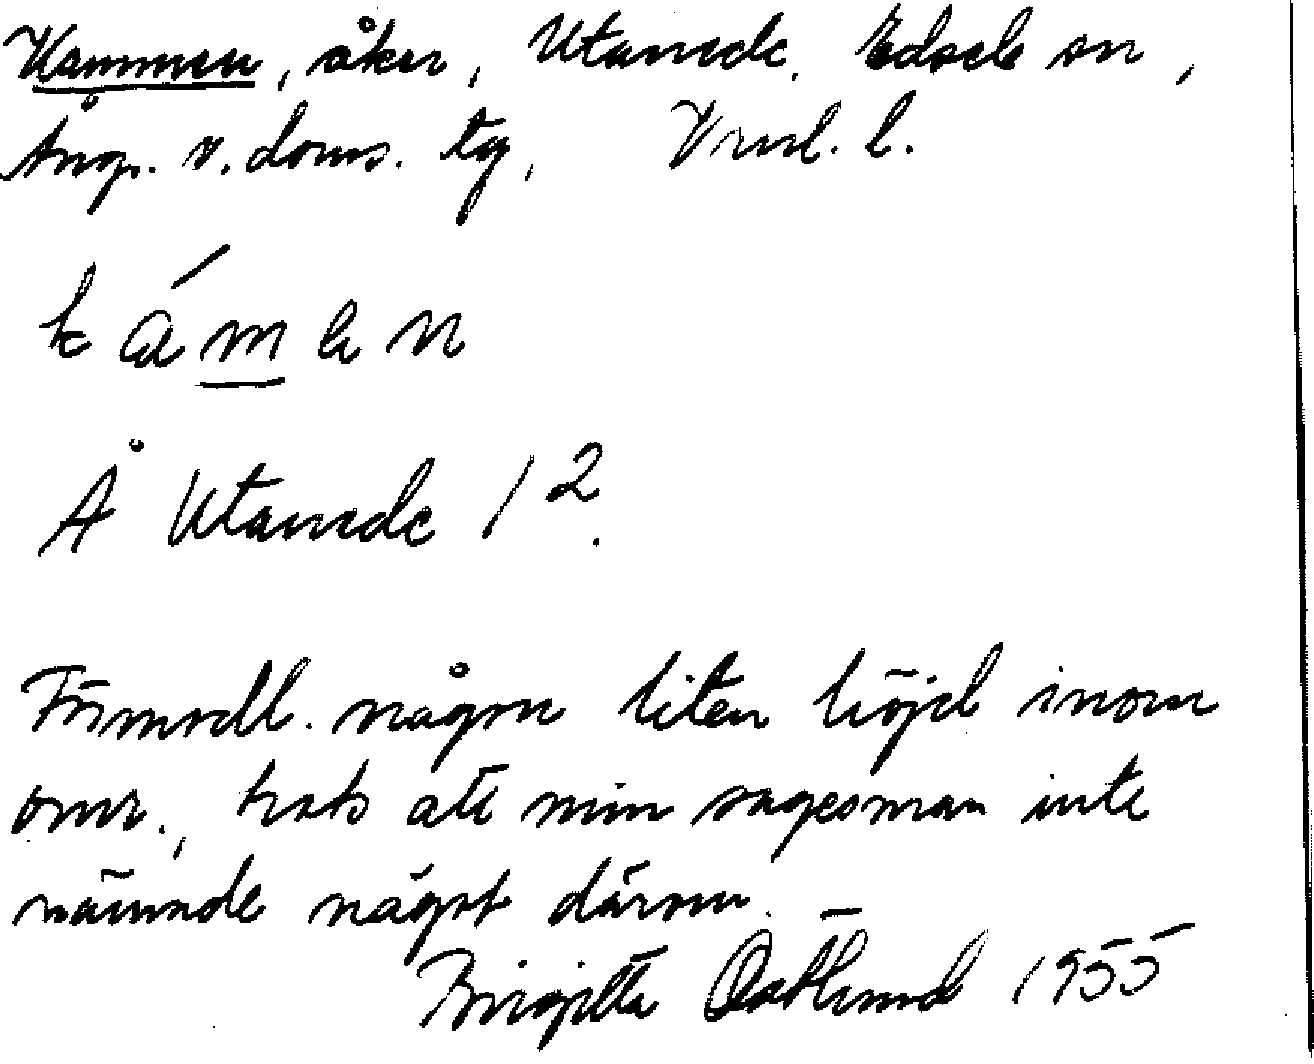 Kammen, åker, Utanede, Edsele sn,
Ång. v. doms. tg, Vnrl. l.
kám̲en
Å Utanede 1².
Förmodl. någon liten höjd inom
omr., trots att min sagesman inte
nämnde något därom.
Birgitta Östlund 1955